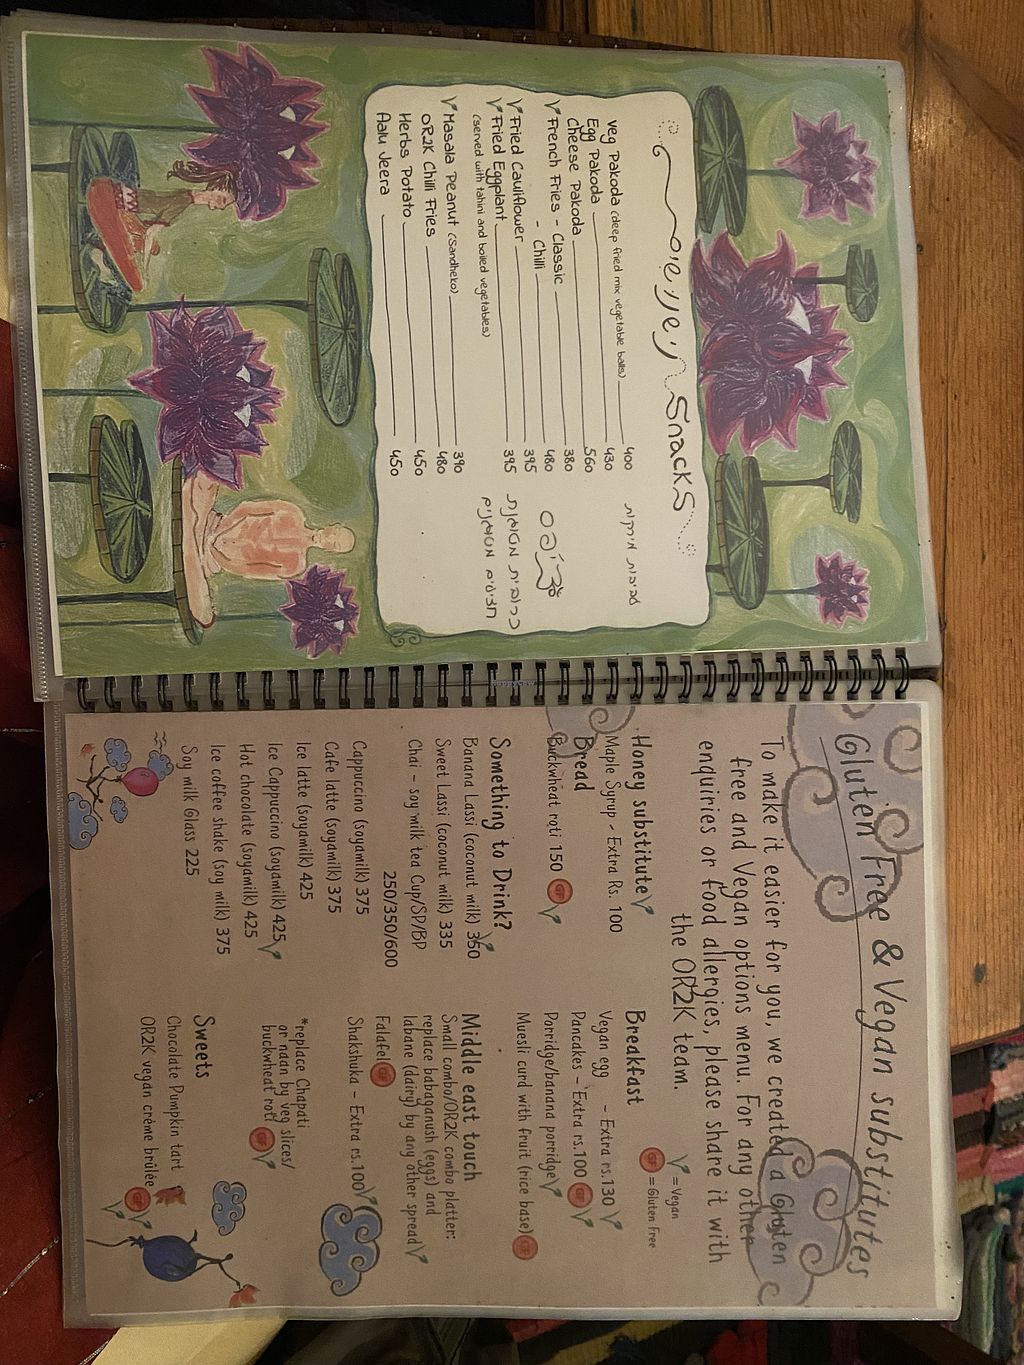 Snacks
Veg Pakoda (deep fried mix vegetable balls) 400 כופתאות ירקות
Egg Pakoda 430
Cheese Pakoda 560
French Fries - Classic 380 צ'יפס
- Chilli 480
Fried Cauliflower 395 כרובית מטוגנת
Fried Eggplant 395 חצילים מטוגנים
(served with tahini and boiled vegetables)
Masala Peanut (Sandheko) 390
OR2K Chilli Fries 480
Herbs Potato 450
Aalu Jeera 450
Gluten Free & Vegan substitutes
To make it easier for you, we created a Gluten
free and Vegan options menu. For any other
enquiries or food allergies, please share it with
the OR2K team.
= Vegan
GF = Gluten Free
Honey substitute
Maple Syrup - Extra Rs. 100
Bread
Buckwheat roti 150 GF
Something to Drink?
Banana Lassi (coconut milk) 350
Sweet Lassi (coconut milk) 335
Chai - soy milk tea Cup/SP/BP
250/350/600
Cappuccino (soyamilk) 375
Cafe latte (soyamilk) 375
Ice latte (soyamilk) 425
Ice Cappuccino (soyamilk) 425
Hot chocolate (soyamilk) 425
Ice coffee shake (soy milk) 375
Soy milk Glass 225
Breakfast
Vegan egg - Extra rs.130
Pancakes - Extra rs.100 GF
Porridge/banana porridge
Muesli curd with fruit (rice base) GF
Middle east touch
Small combo/OR2K combo platter:
replace babaganush (eggs) and
labane (dairy) by any other spread
Falafel GF
Shakshuka - Extra rs.100
*replace Chapati
or naan by veg slices/
buckwheat roti GF
Sweets
Chocolate Pumpkin tart
OR2K vegan crème brûlée GF